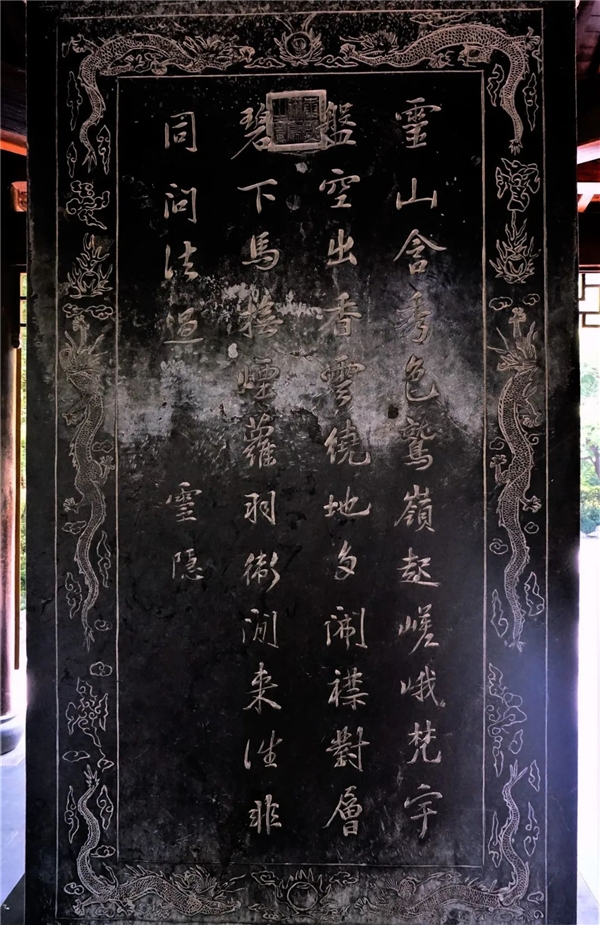 靈山含秀色鷲嶺起嵯峨梵宇
盤空出香雲繞地多開襟對層
碧下馬煙蘿羽衛閒來往非
同問法過 靈隱